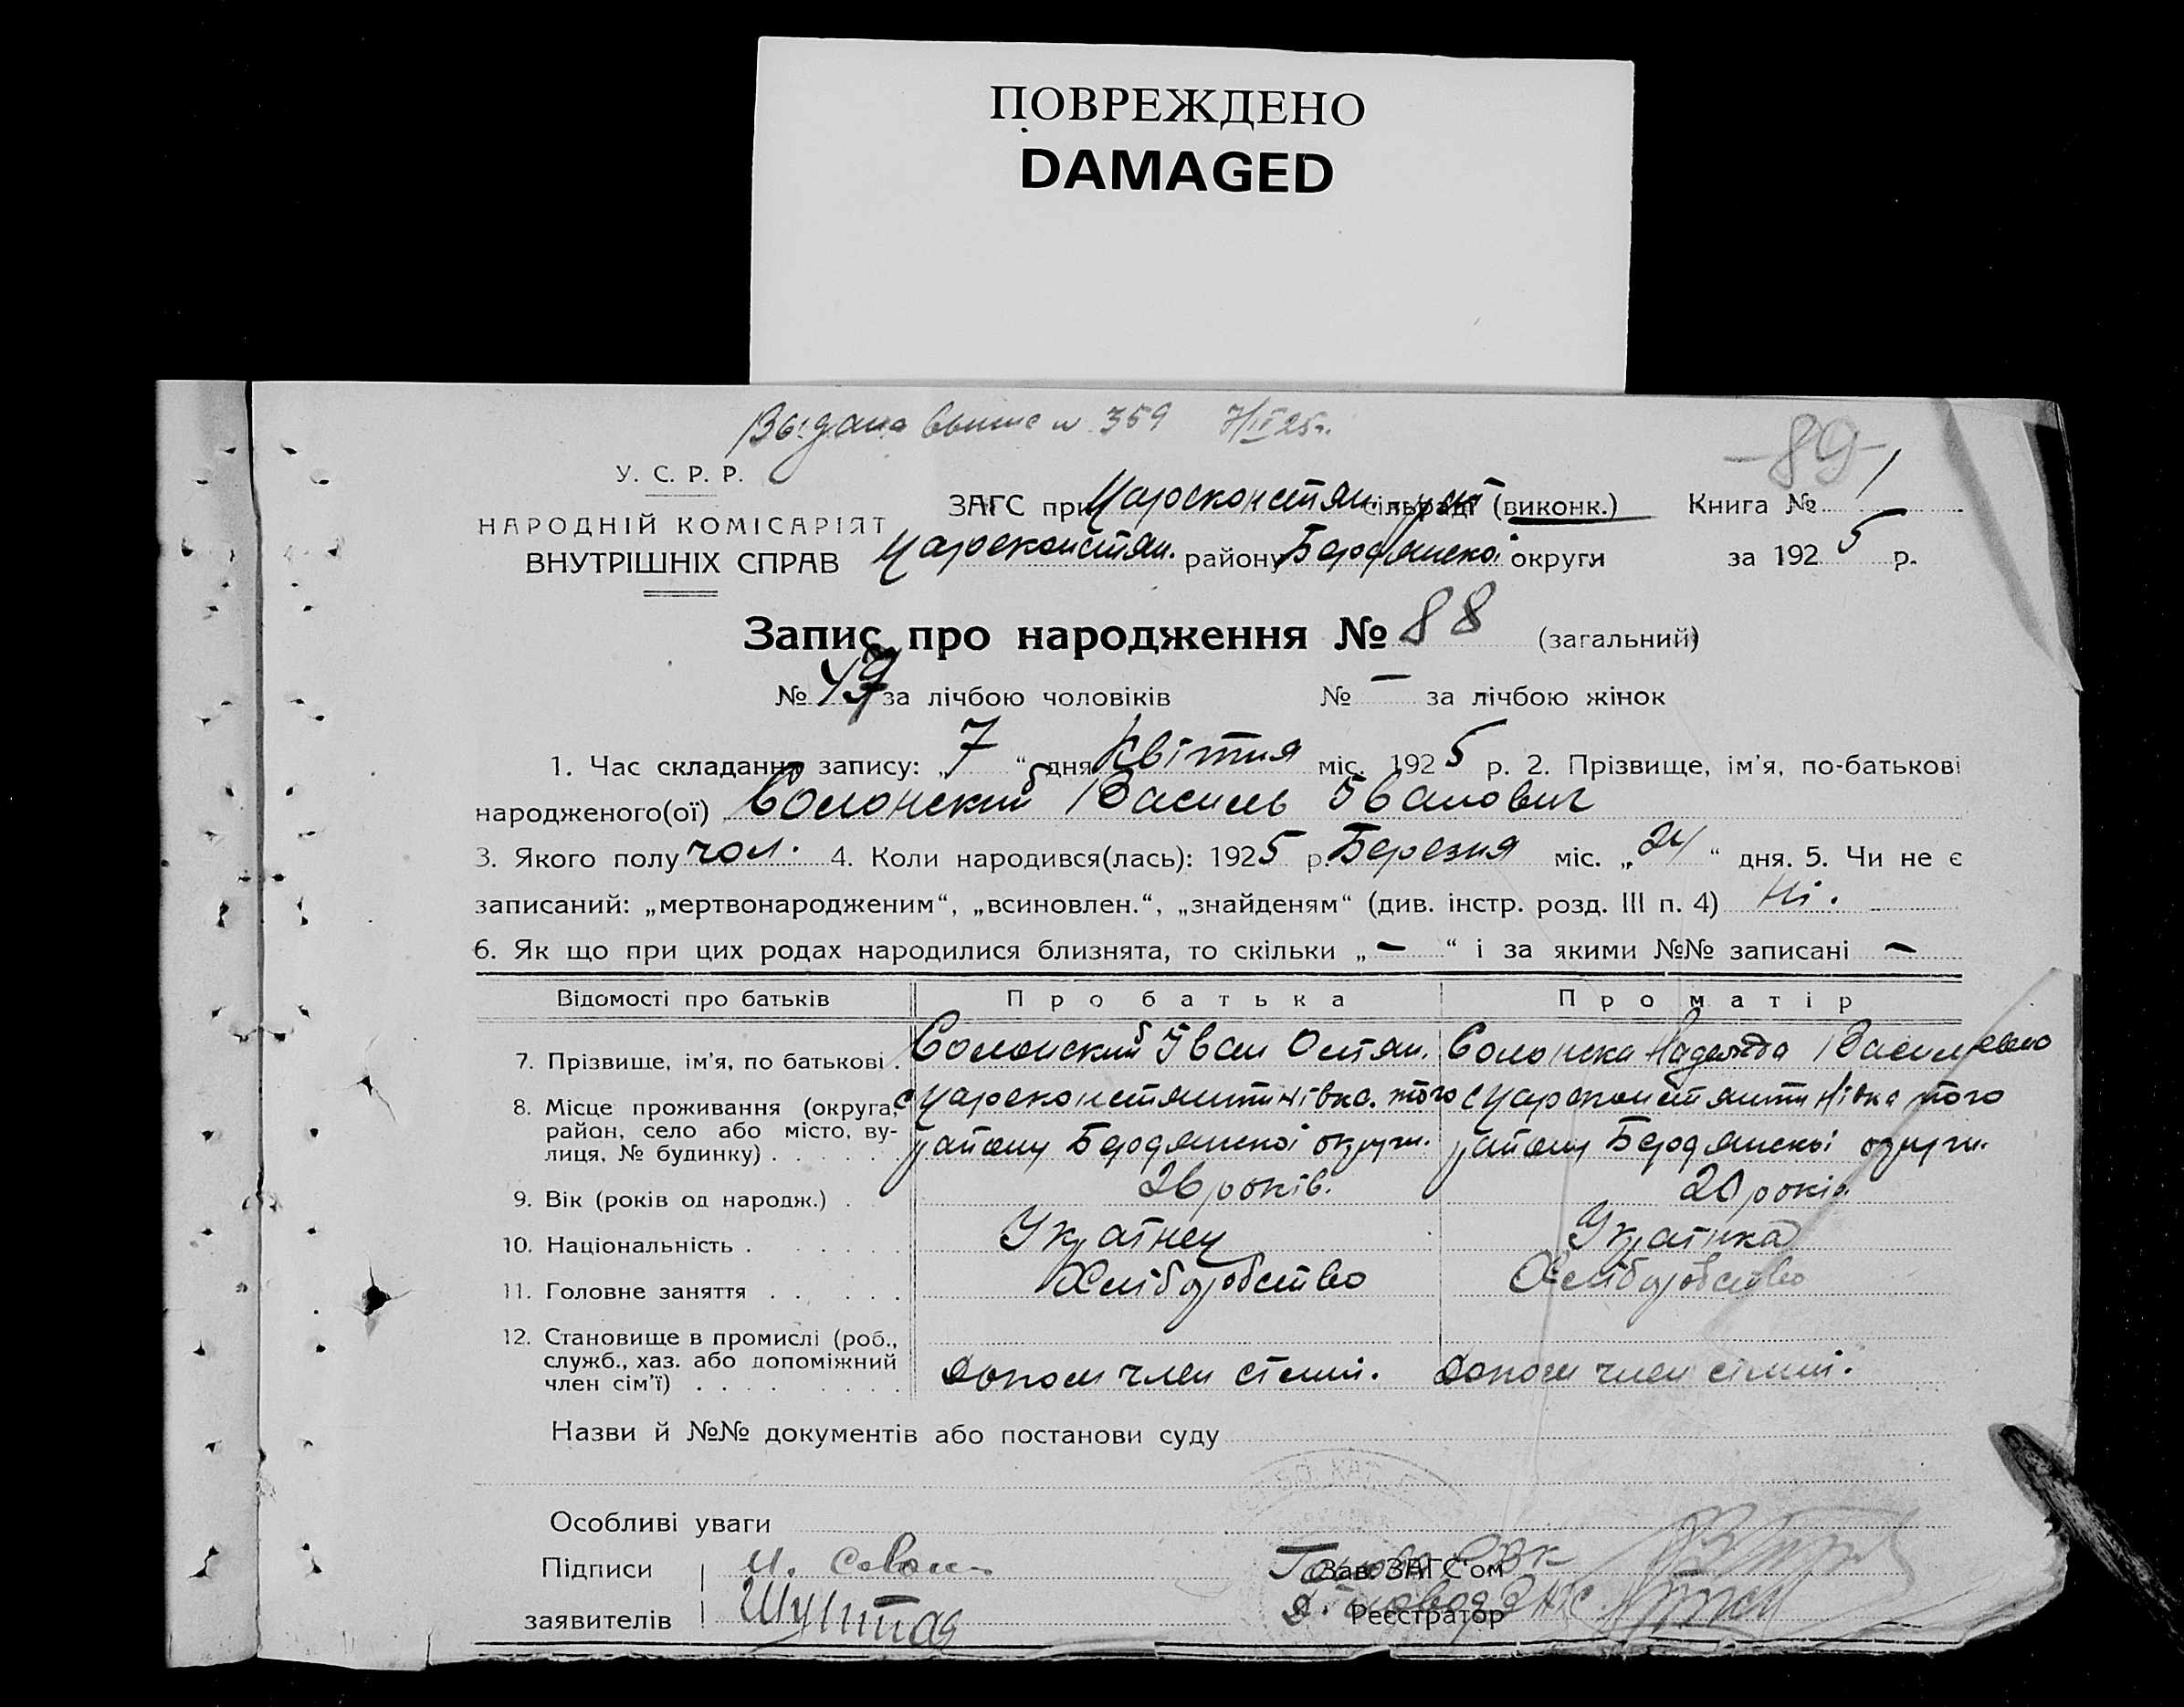 ПОВРЕЖДЕНО
DAMAGED
Выдана выпис № 359 7/IV 25 г.
-89-
У. С. Р. Р.
НАРОДНІЙ КОМІСАРІЯТ
ВНУТРІШНІХ СПРАВ
ЗАГС при Царсконстян. сільраді (виконк.) Книга № 1
Царсконстян. району Бердянської округи за 1925 р.
Запис про народження № 88 (загальний)
№ 49 за лічбою чоловіків № — за лічбою жінок
1. Час складання запису: „7“ дня Квітня міс. 1925 р. 2. Прізвище, ім'я, по-батькові
народженого(ої) Солонский Василь Іванович
3. Якого полу чол. 4. Коли народився(лась): 1925 р. Березня міс. „24“ дня. 5. Чи не є
записаний: „мертвонародженим“, „всиновлен.“, „знайденям“ (див. інстр. розд. III п. 4) Ні.
6. Як що при цих родах народилися близнята, то скільки „—“ і за якими №№ записані —
Відомості про батьків Про батька Про матір
7. Прізвище, ім'я, по батькові . Солонский Іван Остап. Солонска Надежда Василевна
8. Місце проживання (округа, район, село або місто, вулиця, № будинку) . . . .
с Царсконстянтинівка. того с Царсконстянтинівка того
району Бердянскоі округи. району Бердянскоі округи.
9. Вік (років од народж.) . 26 років. 20 років.
10. Національність . . . . . Украінец Украінка
11. Головне заняття . . . . . Хліборобство Хліборобство
12. Становище в промислі (роб.,
служб., хаз. або допоміжний
член сім'ї) . . . . . . . . допом член сімиі. допом член сімиі.
Назви й №№ документів або постанови суду
Особливі уваги
Підписи
заявителів
Зав. ЗАГС'ом
Реєстратор